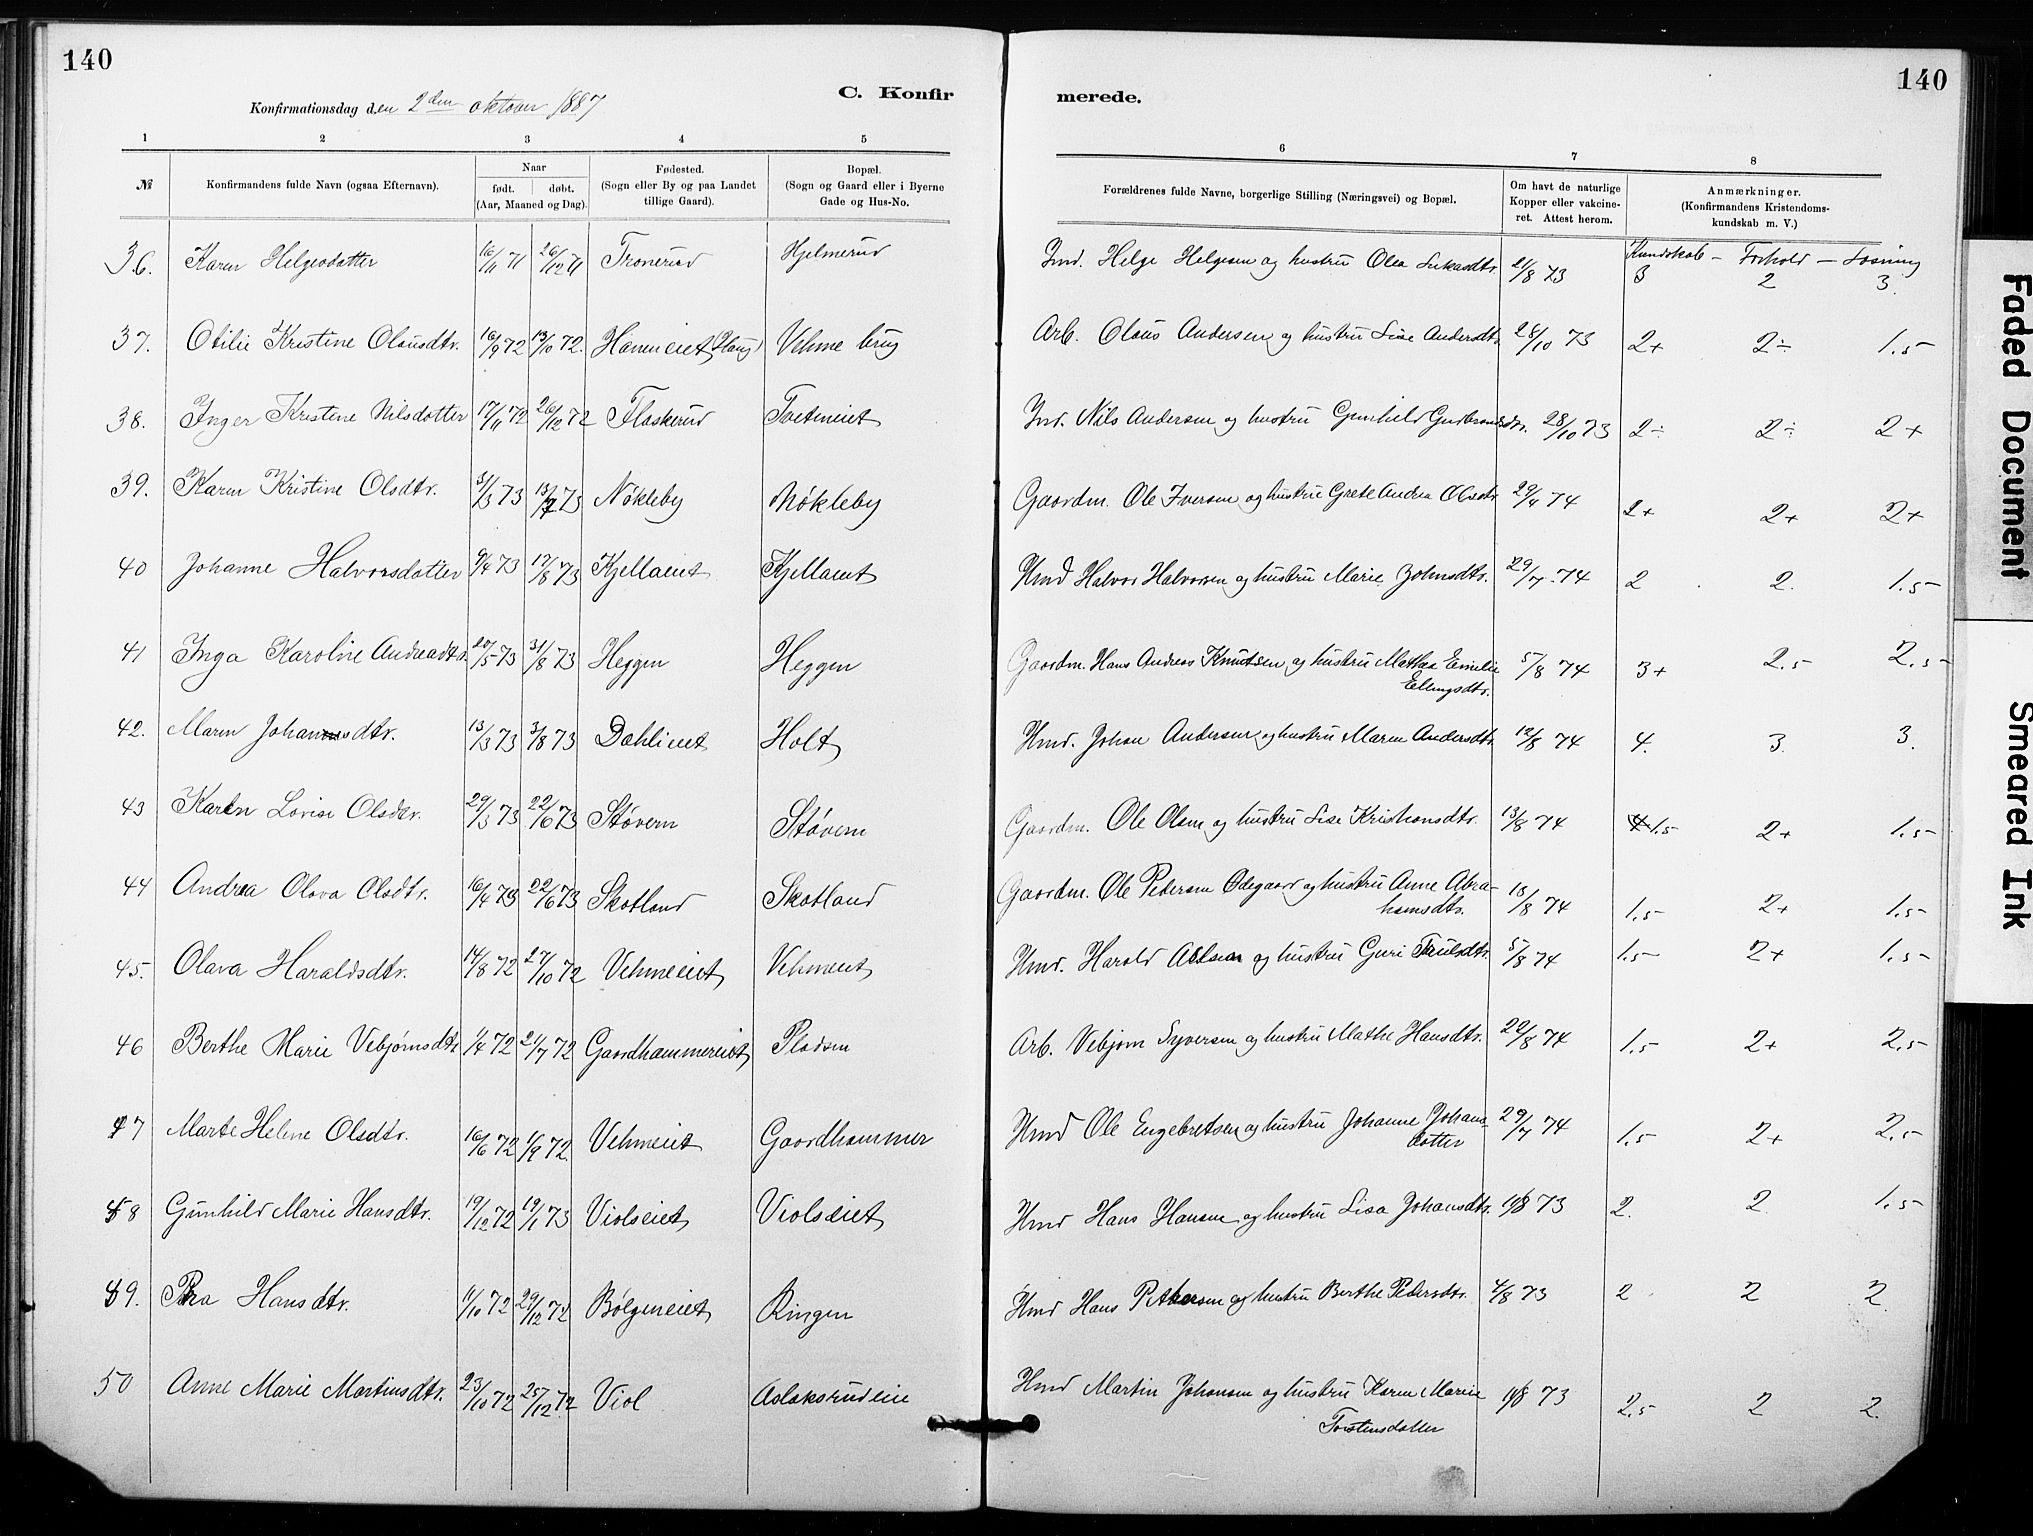 140
140
Konfirmationsdag den 2den oktober 1887
C. Konfir
merede.
1 2 3 4 5 6 7 8
№ Konfirmandens fulde Navn (ogsaa Efternavn). Naar født. døbt. (Aar, Maaned og Dag). Fødested. (Sogn eller By og paa Landet tillige Gaard). Bopæl. (Sogn og Gaard eller i Byerne Gade og Hus-No. Forældrenes fulde Navne, borgerlige Stilling (Næringsvei) og Bopæl. Om havt de naturlige Kopper eller vakcineret. Attest herom. Anmærkninger. (Konfirmandens Kristendomskundskab m. V.)
Kundskab – Forhold – Læsning
36. Karen Helgesdatter 16/11 71 26/12 71 Tronerud Hjelmerud Ind. Helge Helgesen og hustru Olea Lukasdtr. 21/8 73 3 2 3.
37. Otilie Kristine Olausdtr. 16/9 72 13/10 72. Hameneiet (Haug) Vehme brug Arb. Olaus Andersen og hustru Lise Andersdtr. 28/10 73 2+ 2÷ 1.5
38. Inger Kristine Nilsdatter 17/11 72 26/12 72 Flaskerud Tvetmeiet Ind. Nils Andersen og hustru Gunhild Gudbrandsdtr. 28/10 73 2÷ 2÷ 2+
39. Karen Kristine Olsdtr. 3/3 73 13/7 73 Nökleby Nökleby Gaardm. Ole Iversen og hustru Grete Andrea Olsdtr 29/4 74 2+ 2+ 2+
40 Johanne Halvorsdatter 9/4 73 17/8 73 Kjellaeiet Kjellaeiet Hmd Halvor Halvorsen og hustru Marie Johnsdtr. 29/7. 74 2 2. 1.5
41 Inga Karoline Andreadtr. 20/5 73 31/8 73 Heggen Heggen Gaardm. Hans Andreas Knutsen og hustru Mathea Emilie Ellingsdtr. 5/8 74 3+ 2.5 2.5
42. Maren Johansdtr. 13/3 73 3/8 73 Dahlieiet Holt Hmd. Johan Andersen og hustru Maren Andersdtr. 12/8 74 4. 3. 3.
43 Karen Lovise Olsdtr. 29/3 73 22/6 73 Støvern Støvern Gaardm. Ole Olsen og hustru Lise Kristiansdtr. 13/8 74 1.5 2+ 1.5
44 Andrea Olava Olsdtr. 16/4 73 22/6 73 Skotland Skotland Gaardm. Ole Pedersen Ödegaard og hustru Anne Abrahamsdtr. 13/8 74 1.5 2+ 1.5
45. Olava Haraldsdtr. 14/8 72 27/10 72 Vehmeeiet Vehmeiet Hmd. Harald Adlsen og hustru Guri Trulsdtr. 5/8 74 1.5 2+ 1.5
46 Berthe Marie Vebjørnsdtr 1/4 72 21/7 72 Gaardhammereiet Pladsen Arb. Vebjørn Syversen og hustru Mathe Hansdtr. 22/8 74 1.5 2+ 2.5
47 Marte Helene Olsdtr. 16/6 72 1/9 72. Vehmeiet Gaardhammer Hmd Ole Engebretsen og hustru Johanne Johansdatter 29/7 74 1.5 2+ 2.5
48 Gunhild Marie Hansdtr. 19/12 72 19/1 73 Violseiet Violseiet Hmd Hans Hansen og hustru Lisa Johansdtr. 11/8 73 2. 2. 1.5
49. Petra Hansdtr. 11/10 72 29/12 72 Bölgeneiet Ringen Hmd Hans Pettersen og hustru Berthe Pedersdtr. 4/8 73 2 2 2
50 Anne Marie Martinsdtr. 23/10 72 25/12 72 Viol Aslaksrudeie Hmd Martin Johansen og hustru Karen Marie Torstensdatter 11/8 73 2.5 2 2.
Faded Document
Smeared Ink